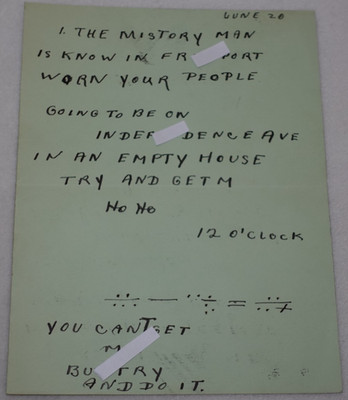 JUNE 28
1. THE MISTORY MAN
IS KNOW IN
WORN YOUR PEOPLE
GOING TO BE ON
AVE
IN AN EMPTY HOUSE
TRY AND GET M
HO HO
12 O'CLOCK
YOU CANT GET
M
TRY
AND DO IT.